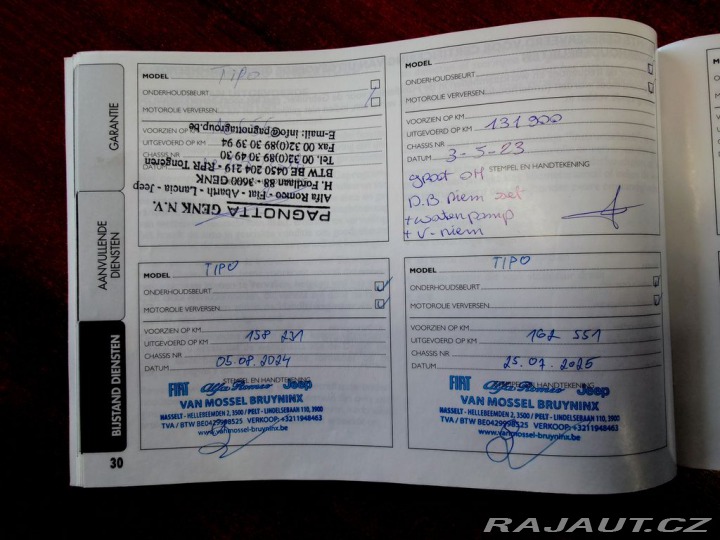 GARANTIE
AANVULLENDE
DIENSTEN
BIJSTAND DIENSTEN
30
MODEL TIPO
ONDERHOUDSBEURT
MOTOROLIE VERVERSEN
VOORZIEN OP KM
UITGEVOERD OP KM
CHASSIS NR
DATUM
PAGNOTTA GENK N.V.
Alfa Romeo - Fiat - Abarth - Lancia - Jeep
H. Fordlaan 88 - 3600 GENK
BTW BE 0450 204 219 - RPR Tongeren
Tel. 00 32/(0)89 30 49 30
Fax 00 32/(0)89 30 39 94
E-mail: info@pagnottagroup.be
MODEL
ONDERHOUDSBEURT
MOTOROLIE VERVERSEN
VOORZIEN OP KM
UITGEVOERD OP KM 131 900
CHASSIS NR
DATUM 3-5-23
STEMPEL EN HANDTEKENING
groot OH
D.B Riem set
+ waterpomp
+ V-riem
MODEL TIPO
ONDERHOUDSBEURT
MOTOROLIE VERVERSEN
VOORZIEN OP KM
UITGEVOERD OP KM 158 231
CHASSIS NR
DATUM 05.08.2024
STEMPEL EN HANDTEKENING
FIAT Alfa Romeo Jeep
VAN MOSSEL BRUYNINX
HASSELT - HELLEBEEMDEN 2, 3500 / PELT - LINDELSEBAAN 110, 3900
TVA / BTW BE0429998525 VERKOOP: +3211948463
www.vanmossel-bruyninx.be
MODEL TIPO
ONDERHOUDSBEURT
MOTOROLIE VERVERSEN
VOORZIEN OP KM
UITGEVOERD OP KM 162 551
CHASSIS NR
DATUM 25.07.2025
STEMPEL EN HANDTEKENING
FIAT Alfa Romeo Jeep
VAN MOSSEL BRUYNINX
HASSELT - HELLEBEEMDEN 2, 3500 / PELT - LINDELSEBAAN 110, 3900
TVA / BTW BE0429998525 VERKOOP: +3211948463
www.vanmossel-bruyninx.be
RAJAUT.CZ